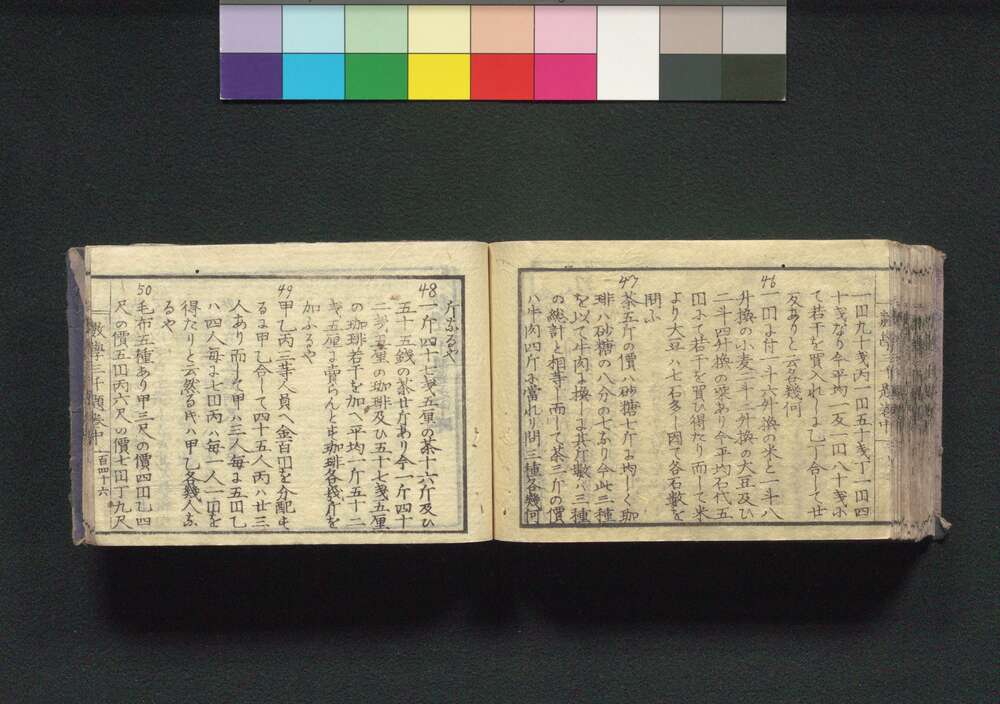 一円九十銭丙一円五十銭丁一円四
十銭なり今平均一反一円八十銭ホ
て若干を買入れしよ乙丁合して廿
反ありと云各幾何
46
一円よ付一斗六升換の米と一斗八
升換の小麦二斗二升換の大豆及ひ
二斗四升換の粟あり今平均石代五
円よて若干を買ひ得たり而して米
より大豆ハ七石多し因て各石数を
問ふ
47
茶五斤の價ハ砂糖七斤よ均しく珈
琲ハ砂糖の八分の七なり今此三種
を以て牛肉よ換しよ其斤數ハ三種
の総計と相等し而して茶三斤の價
ハ牛肉四斤よ當れり問三種各幾何
斤なるや
48
一斤四十七銭五厘の茶十六斤及ひ
五十五銭の茶廿斤あり今一斤四十
二銭五厘の珈琲及ひ五十七銭五厘
の珈琲若干を加へ平均一斤五十二
銭五厘よ賣らんと史珈琲各幾斤を
加ふるや
49
甲乙丙三等人員へ金百円を分配史
るよ甲乙合して四十五人丙ハ廿三
人あり而して甲ハ三人毎よ五円乙
ハ四人毎よ七円丙ハ毎一人一円を
得たりと云然る代ハ甲乙各幾人な
るや
50
毛布五種あり甲三尺の價四円乙四
尺の價五円丙六尺の價七円丁九尺
数學三千題卷中 一百四十六